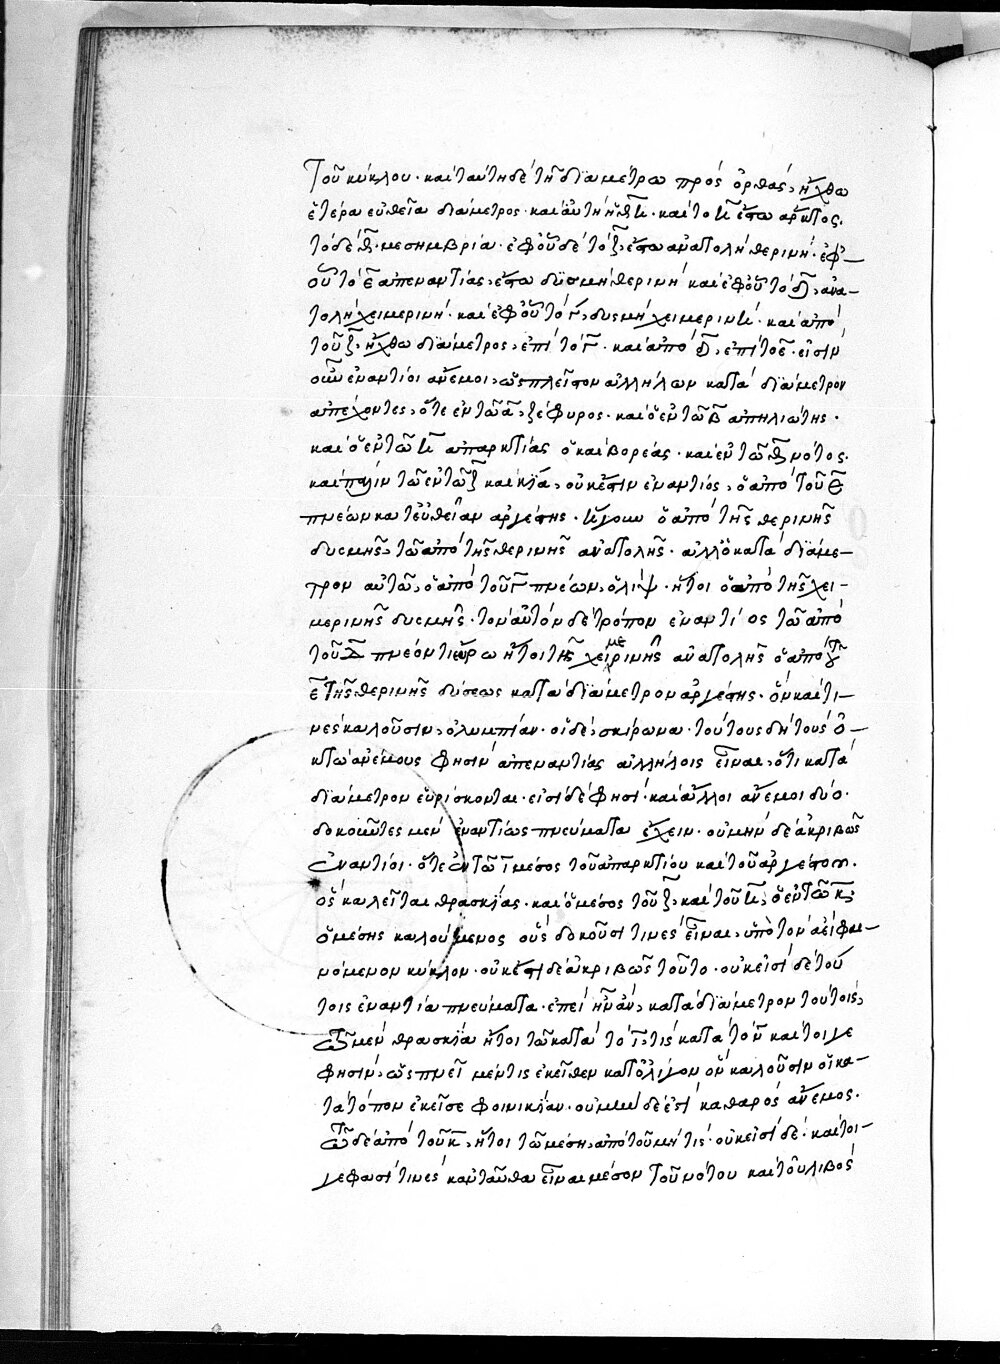 Τοῦ κύκλου· καὶ ταύτη δὲ τῇ διαμέτρω πρὸς ὀρθὰς, ἤχθω
ἑτέρα εὐθεῖα διάμετρος· καὶ αὐτὴ ἡ θ̅η̅· καὶ τὸ η̅ ἔστω ἄρκτος.
τὸ δὲ θ̅· μεσημβρία· ἐφ' οὗ δὲ τὸ ζ̅, ἔστω ἀνατολὴ θερινή· ἐφ'
οὗ τὸ ε̅ ἀπεναντίας, ἔστω δύσμη θερινὴ καὶ ἐφ' οὗ τὸ δ̅, ἀνα-
τολὴ χειμερινή· καὶ ἐφ' οὗ τὸ γ̅, δυσμὴ χειμερινή· καὶ ἀπὸ
τοῦ ζ̅, ἤχθω διάμετρος, ἐπὶ τὸ γ̅· καὶ ἀπὸ δ̅, ἐπὶ τὸ ε̅· εἰσὶν
οὖν ἐναντίοι ἄνεμοι, ὡς πλεῖστον ἀλλήλων κατὰ διάμετρον
ἀπέχοντες, ὅτε ἐν τῶ α̅, ζέφυρος· καὶ ὁ ἐν τῶ β̅ ἀπηλιώτης·
καὶ ὁ ἐν τῶ η̅ ἀπαρκτίας ὁ καὶ βορέας· καὶ ἐν τῶ θ̅ νότος·
καὶ πάλιν τῶ ἐν τῶ ζ̅ καικία, οὐκ ἔστιν ἐναντίος, ὁ ἀπὸ τοῦ ε̅
πνέων κατ' εὐθεῖαν ἀργέστης· ἤγουν ὁ ἀπὸ τῆς θερινῆς
δυσμῆς, τῶ ἀπὸ τῆς θερινῆς ἀνατολῆς· ἀλλ' ὁ κατὰ διάμε-
τρον αὐτῶ, ὁ ἀπὸ τοῦ γ̅ πνέων, ὁ λὶψ· ἤτοι ὁ ἀπὸ τῆς χει-
μερινῆς δυσμῆς· τὸν αὐτὸν δὲ τρόπον ἐναντίος τῶ ἀπὸ
τοῦ δ̅ πνέοντι εὔρω ἤτοι τῆς χειμερινῆς ἀνατολῆς ὁ ἀπὸ τοῦ
ε̅ τῆς θερινῆς δύσεως κατὰ διάμετρον ἀργέστης· ὃν καὶ τι-
νὲς καλοῦσιν, ὀλυμπίαν· οἱ δὲ, σκίρωνα· τούτους δὴ τοὺς ὀ-
κτὼ ἀνέμους φησὶν ἀπεναντίας ἀλλήλοις εἶναι, ὅτι κατὰ
διάμετρον εὑρίσκονται· εἰσὶ δέ φησι· καὶ ἄλλοι ἄνεμοι δύο·
δοκοῦντες μὲν ἐναντίως πνεύματα ἔχειν· οὐ μὴν δὲ ἀκριβῶς
ἐναντίοι· ὅτε ἐν τῶ ι̅ μέσος τοῦ ἀπαρκτίου καὶ τοῦ ἀργέστου.
ὃς καλεῖται θρασκίας· καὶ ὁ μέσος τοῦ ζ̅· καὶ τοῦ η̅, ὁ ἐν τῶ κ̅,
ὁ μέσης καλούμενος οὓς δοκοῦσι τινὲς εἶναι, ὑπὸ τὸν ἀεὶ φαι-
νόμενον κύκλον· οὐκ ἔστι δὲ ἀκριβῶς τοῦτο· οὐκ εἰσὶ δὲ τού
τοις ἐναντία πνεύματα· ἐπεὶ ἦν ἂν, κατὰ διάμετρον τούτοις,
τῶ μὲν θρασκία ἤτοι τῶ κατὰ τὸ ι̅, τὶς κατὰ τὸ ν̅ καίτοιγε
φησὶν, ὡς πνεῖ μέντις ἐκεῖθεν κατ' ὀλίγον ὃν καλοῦσιν οἱ κα-
τὰ τόπον ἐκεῖσε φοινικίαν· οὐ μὴν δέ ἐστι καθαρὸς ἄνεμος.
τῶ δὲ ἀπὸ τοῦ κ̅, ἤτοι τῶ μέση, ἀπὸ τοῦ μ̅ τίς· οὐκ εἰσὶ δέ· καίτοι-
γε φασί τινὲς κἀνταῦθα εἶναι μέσον τοῦ νότου καὶ τοῦ λιβὸς